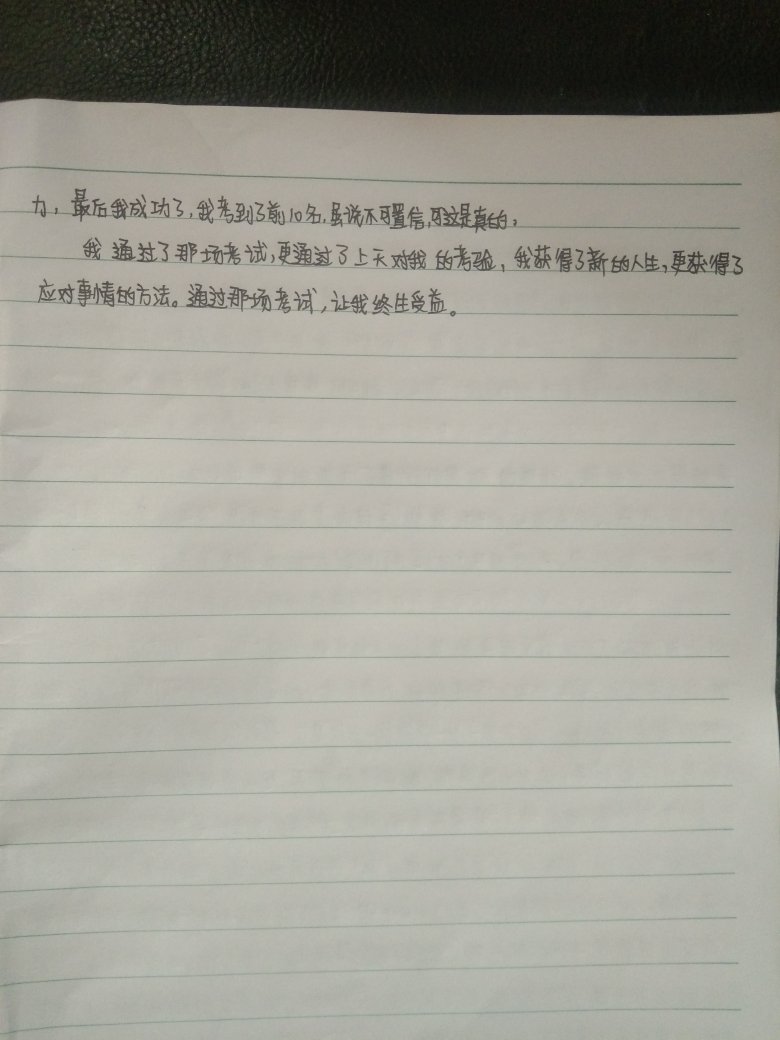 力，最后我成功了，我考到了前10名，虽说不可置信，可这是真的，
我通过了那场考试，更通过了上天对我的考验，我获得了新的人生，更获得了
应对事情的方法。通过那场考试，让我终生受益。